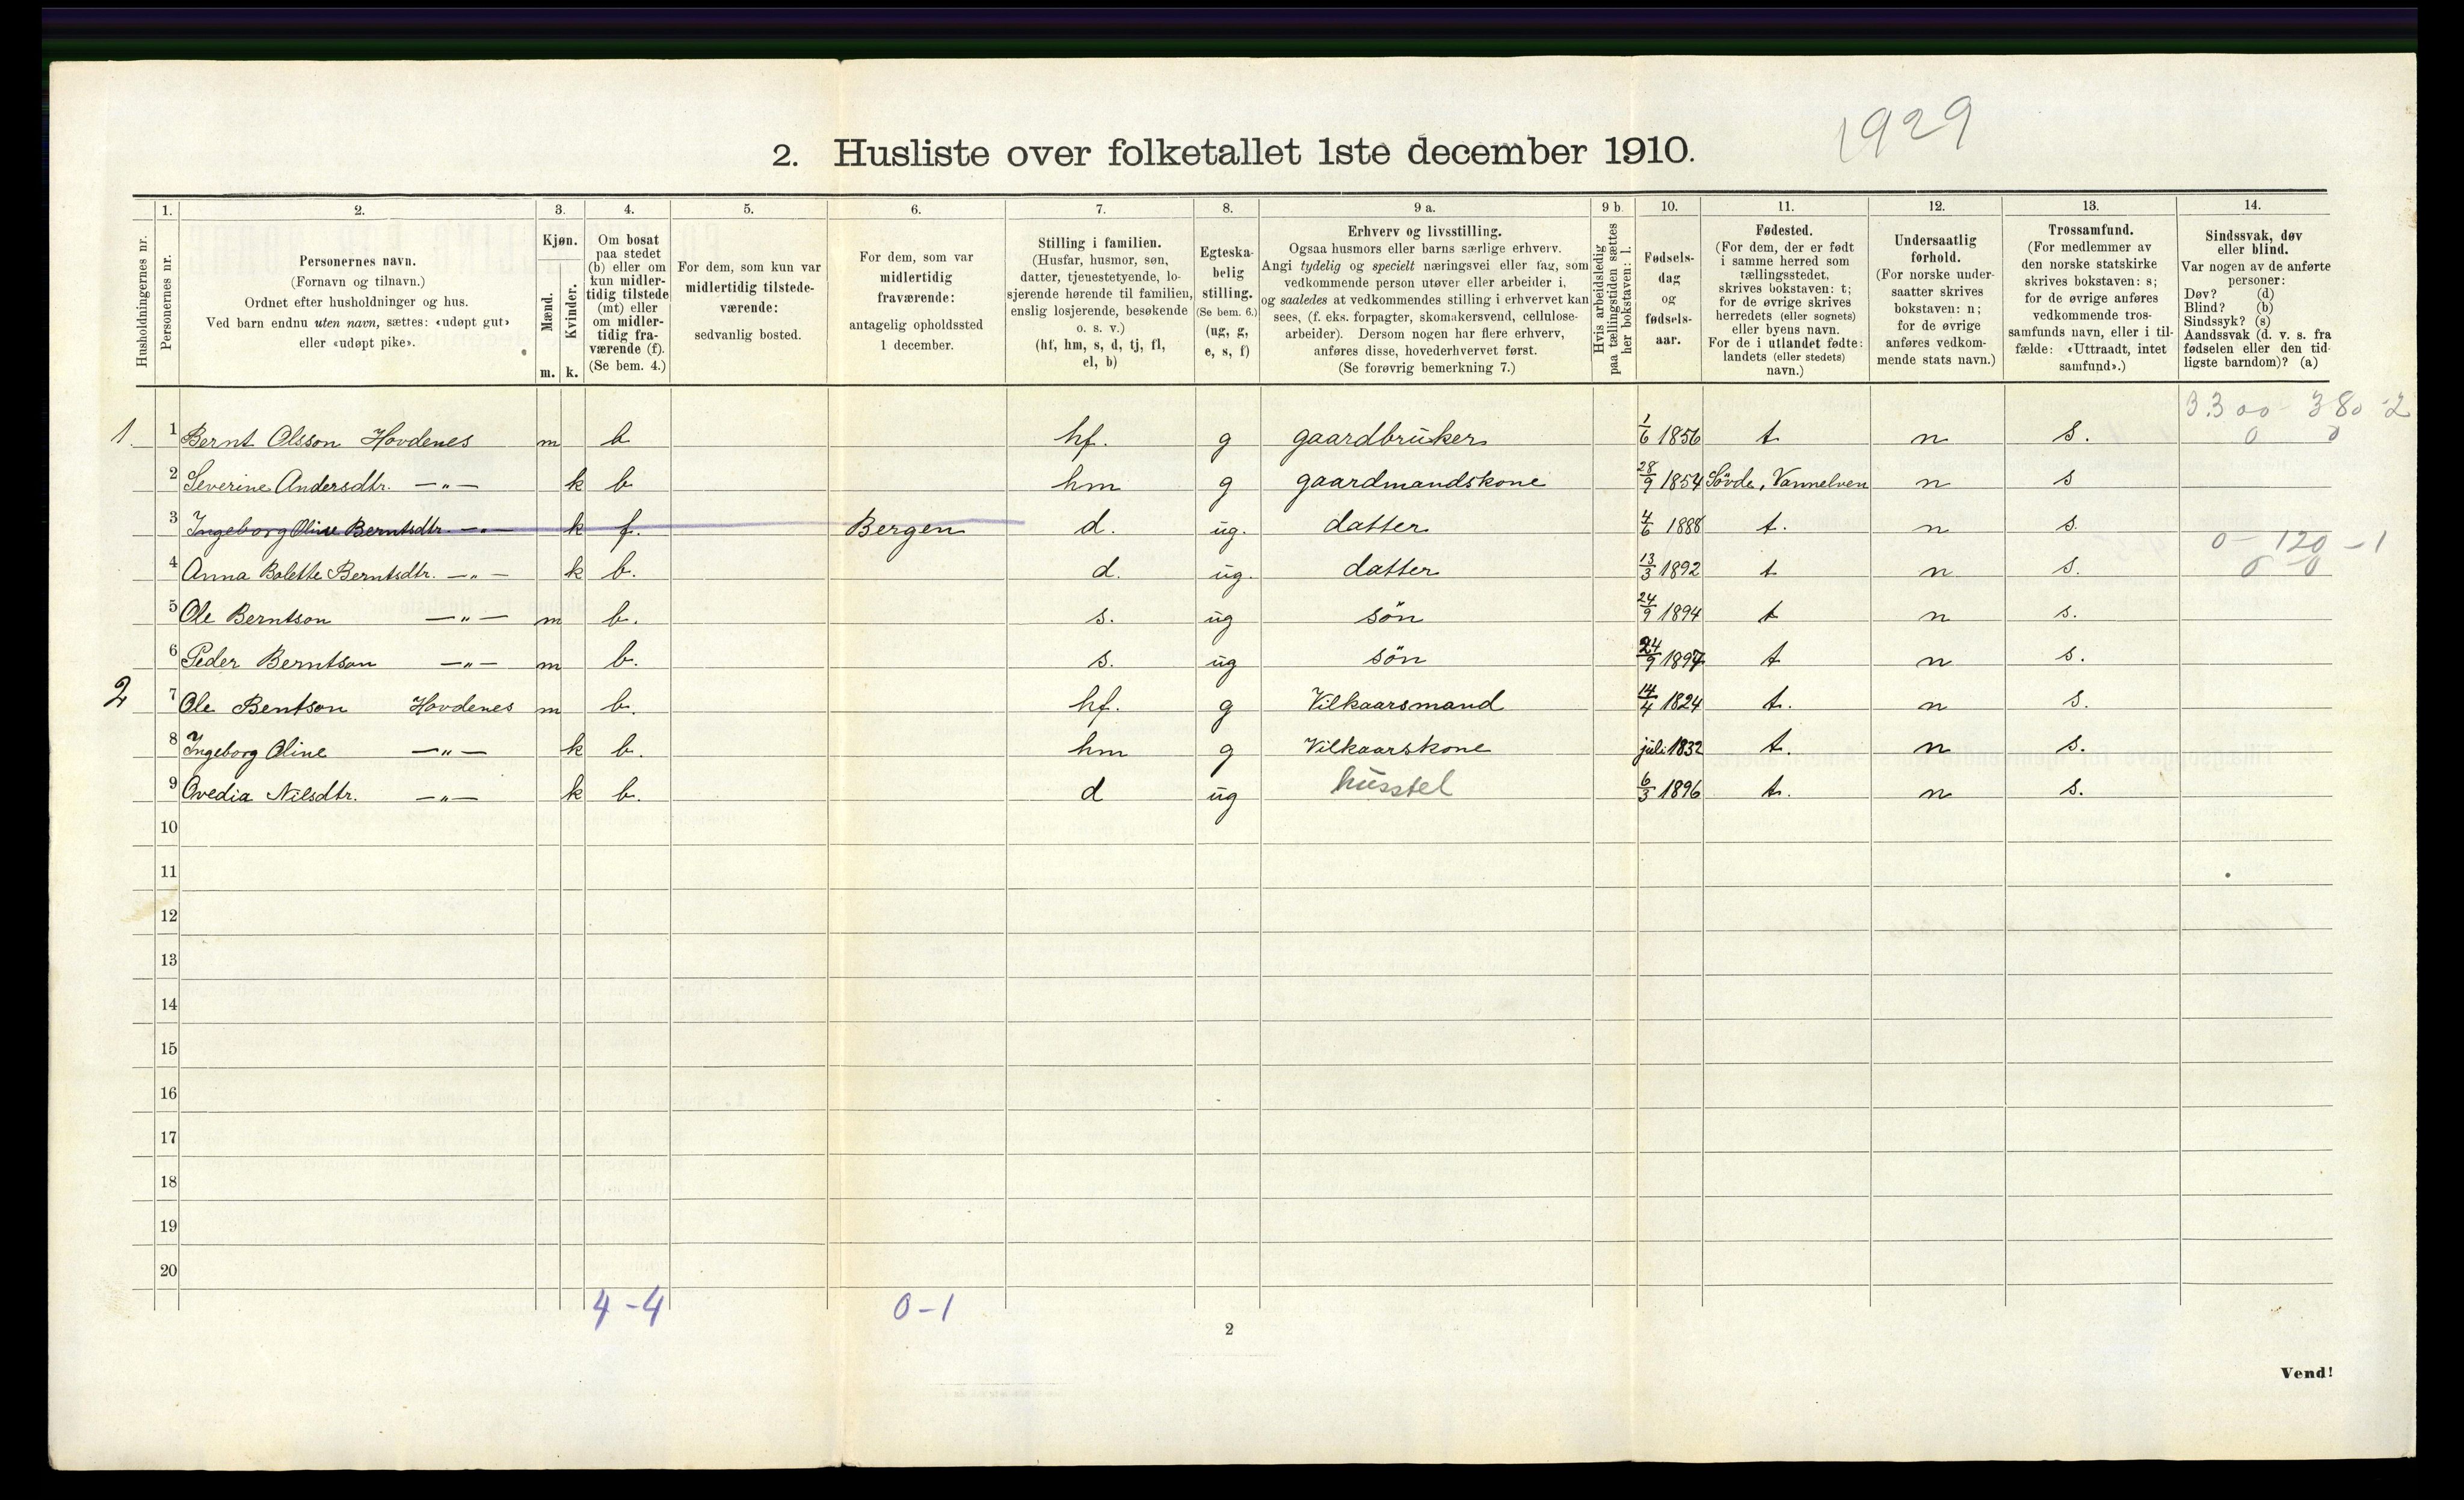 1929
2. Husliste over folketallet 1ste december 1910.
Husholdningernes nr.
1.
Personernes nr.
2.
Personernes navn.
(Fornavn og tilnavn.)
Ordnet efter husholdninger og hus.
Ved barn endnu uten navn, sættes: «udøpt gut»
eller «udøpt pike».
3.
Kjøn.
Mænd.
Kvinder.
m. k.
4.
Om bosat
paa stedet
(b) eller om
kun midler-
tidig tilstede
(mt) eller
om midler-
tidig fra-
værende (f).
(Se bem. 4.)
5.
For dem, som kun var
midlertidig tilstede-
værende:
sedvanlig bosted.
6.
For dem, som var
midlertidig
fraværende:
antagelig opholdssted
1 december.
7.
Stilling i familien.
(Husfar, husmor, søn,
datter, tjenestetyende, lo-
sjerende hørende til familien,
enslig losjerende, besøkende
o. s. v.)
(hf, hm, s, d, tj, fl,
el, b)
8.
Egteska-
belig
stilling.
(Se bem. 6.)
(ug, g,
e, s, f)
9 a.
Erhverv og livsstilling.
Ogsaa husmors eller barns særlige erhverv.
Angi tydelig og specielt næringsvei eller fag, som
vedkommende person utøver eller arbeider i,
og saaledes at vedkommendes stilling i erhvervet kan
sees, (f. eks. forpagter, skomakersvend, cellulose-
arbeider). Dersom nogen har flere erhverv,
anføres disse, hovederhvervet først.
(Se forøvrig bemerkning 7.)
9 b.
Hvis arbeidsledig
paa tællingstiden sættes
her bokstaven: l.
10.
Fødsels-
dag
og
fødsels-
aar.
11.
Fødested.
(For dem, der er født
i samme herred som
tællingsstedet,
skrives bokstaven: t;
for de øvrige skrives
herredets (eller sognets)
eller byens navn.
For de i utlandet fødte:
landets (eller stedets)
navn.)
12.
Undersaatlig
forhold.
(For norske under-
saatter skrives
bokstaven: n;
for de øvrige
anføres vedkom-
mende stats navn.)
13.
Trossamfund.
(For medlemmer av
den norske statskirke
skrives bokstaven: s;
for de øvrige anføres
vedkommende tros-
samfunds navn, eller i til-
fælde: «Uttraadt, intet
samfund».)
14.
Sindssvak, døv
eller blind.
Var nogen av de anførte
personer:
Døv? (d)
Blind? (b)
Sindssyk? (s)
Aandssvak (d. v. s. fra
fødselen eller den tid-
ligste barndom)? (a)
3.300 - 380 - 2
1. 1 Bernt Olsson Hovdenes m b hf. g gaardbruker 1/6 1856 t n s. 0 0
2 Severine Andersdtr. —„— k b hm g gaardmandskone 28/9 1854 Søvde, Vannelven n s
3 Ingeborg Oline Berntsdtr. —„— k f. Bergen d. ug. datter 4/6 1888 t. n s.
0 - 120 - 1
4 Anna Bolette Berntsdtr. —„— k b. d. ug. datter 13/3 1892 t n s. 0 0
5 Ole Berntson —„— m b. s. ug søn 24/9 1894 t n s.
6 Peder Berntson —„— m b. s. ug søn 24/9 1897 t n s.
2 7 Ole Bentson Hovdenes m b. hf. g Vilkaarsmand 14/4 1824 t. n s.
8 Ingeborg Oline —„— k b. hm g Vilkaarskone juli 1832 t. n s.
9 Ovedia Nilsdtr. —„— k b. d ug husstel 6/3 1896 t. n s.
10
11
12
13
14
15
16
17
18
19
20
4-4 0-1
2
Vend!